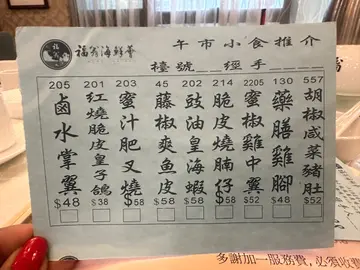 福翁海鮮薈
午市小食推介
檯號__經手__
205 鹵水掌翼 $48
201 紅燒脆皮皇子鴿 $38
203 蜜汁肥叉燒 $58
45 藤椒爽魚皮 $58
202 豉油皇海蝦 $58
214 脆皮燒腩仔 $58
2205 蜜椒雞中翼 $52
130 藥膳雞腳 $48
557 胡椒咸菜豬肚 $52
多謝加一服務費,必須收